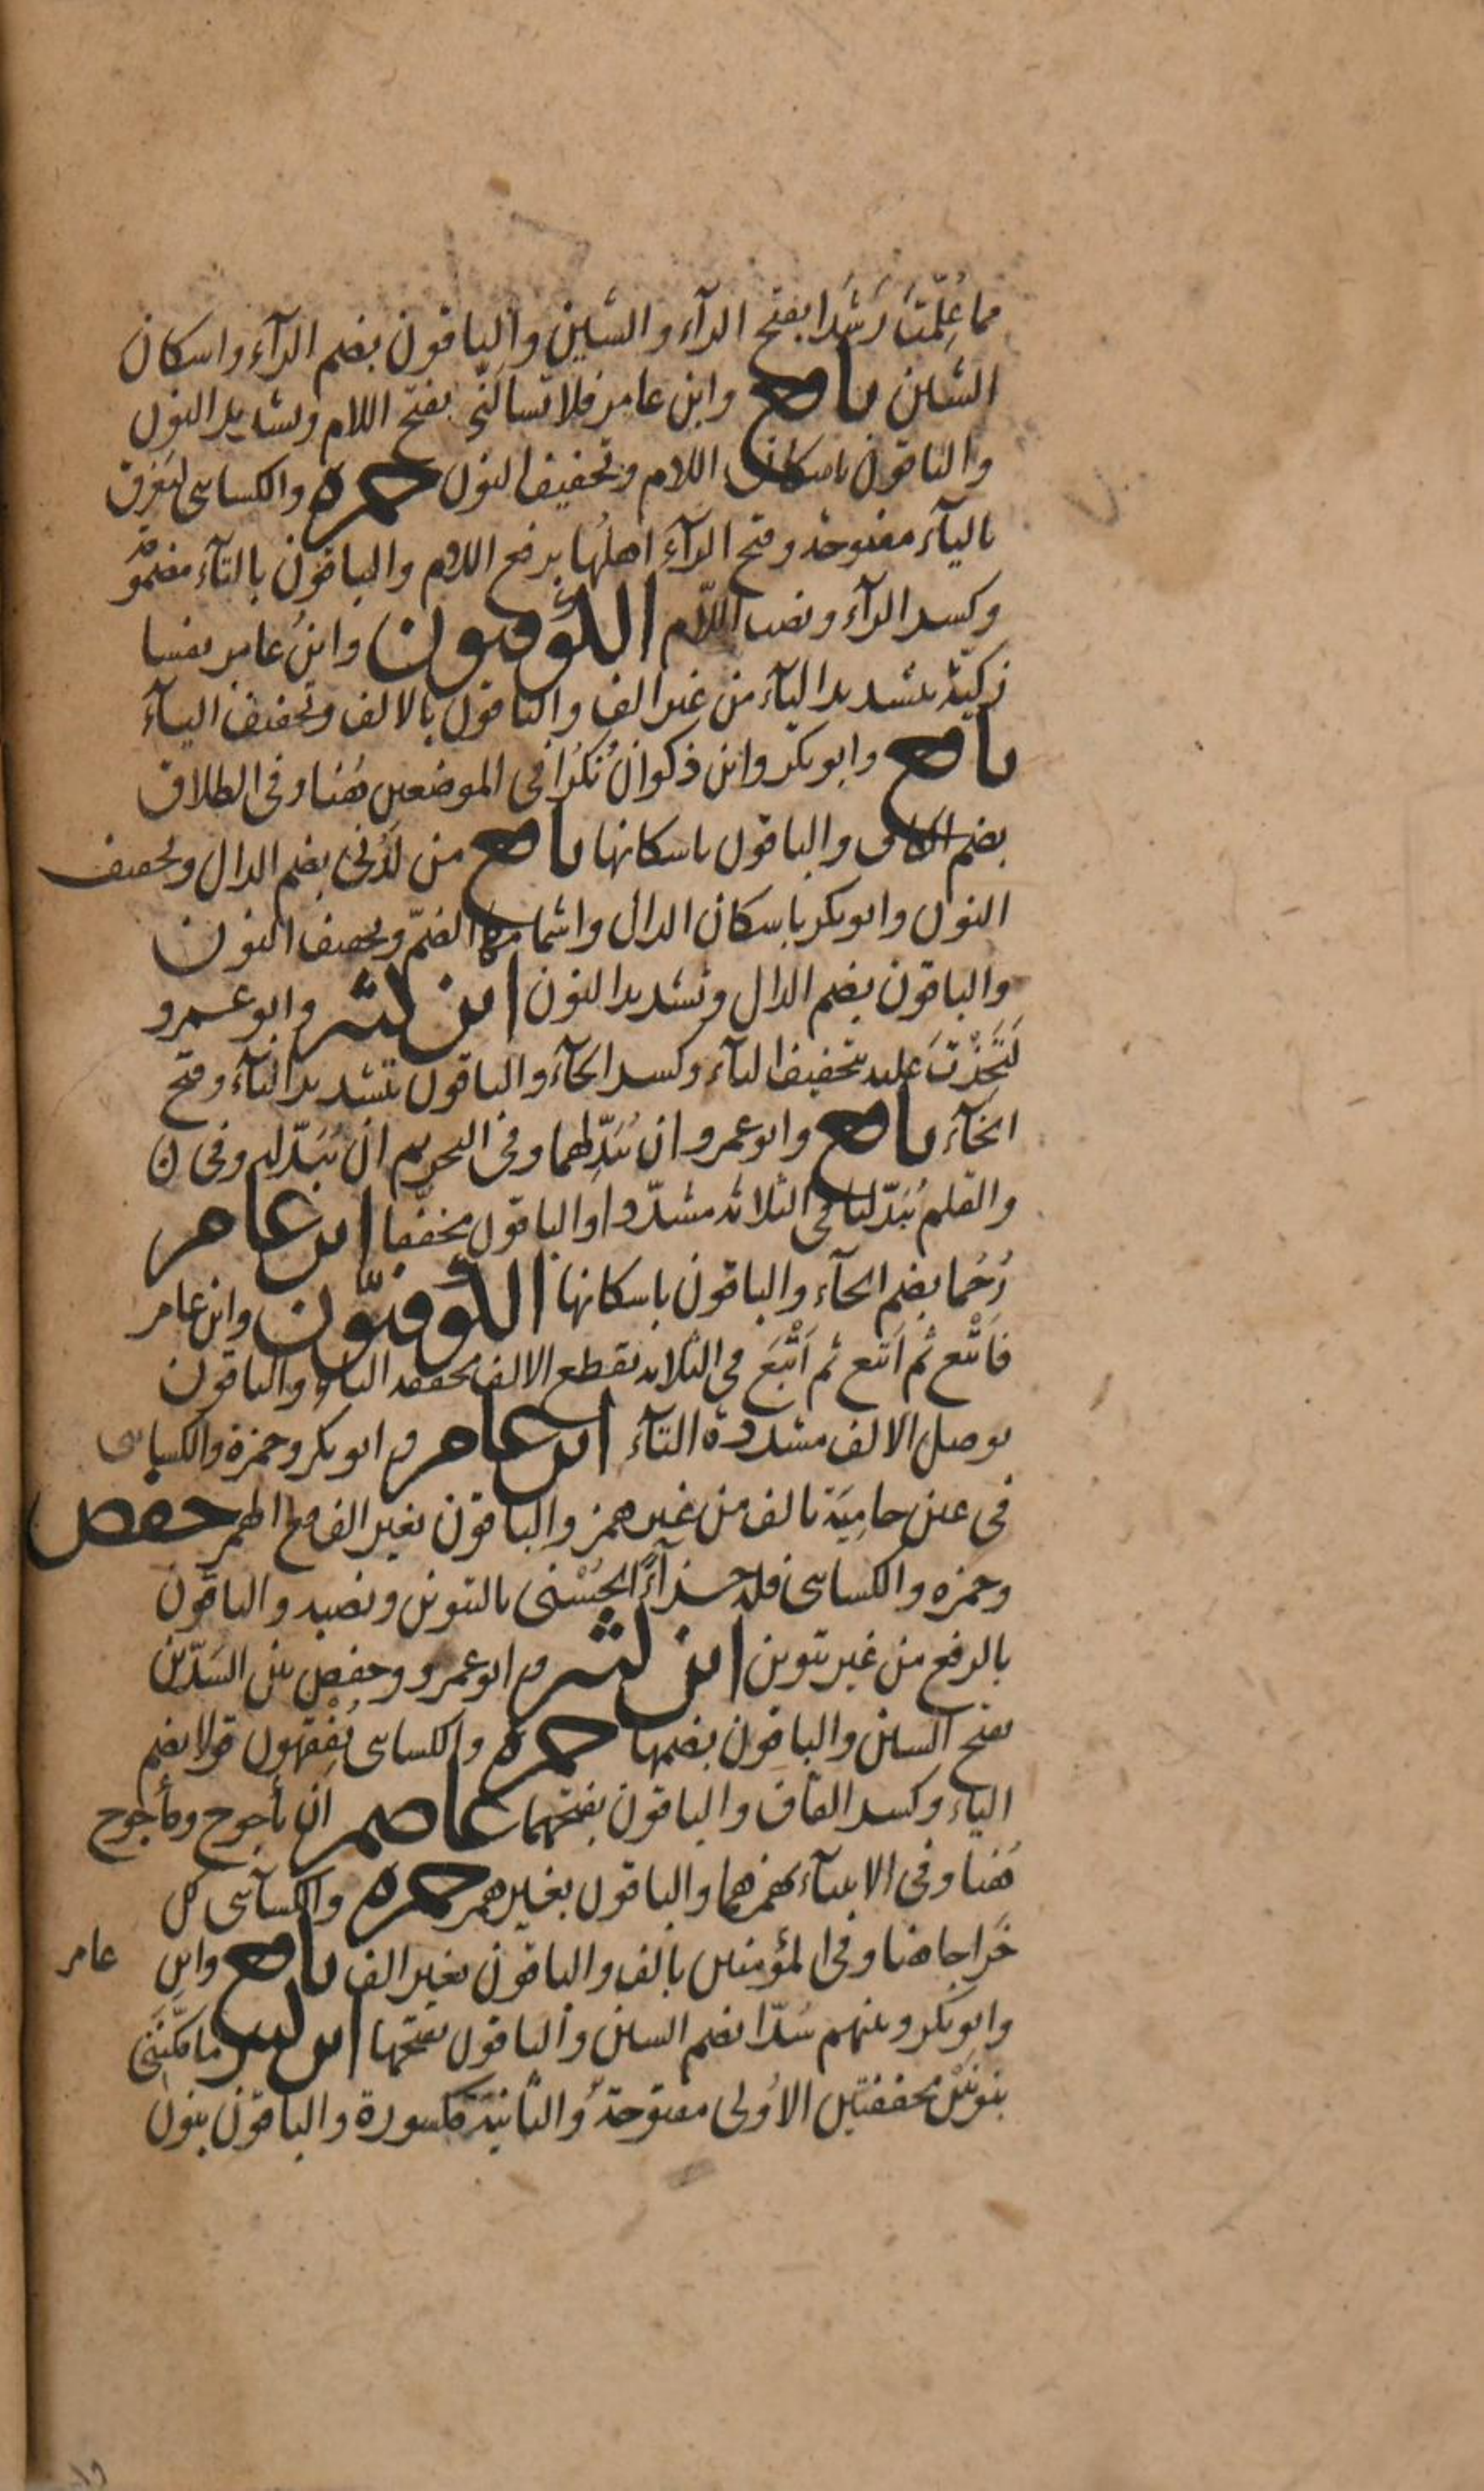 مما عُلِّمتَ رَشَدا بفتح الرآء والشين والباقون بضم الرآء واسكان
الشين نافع وابن عامر فلا تسألَنّى بفتح اللام وتشديد النون
والباقون باسكان اللام وتخفيف النون حمزة والكساى ليَغرق
باليآء مفتوحة وفتح الرآء اهلُها برفع اللام والباقون بالتآء مضمومة
وكسر الرآء ونصب اللّام الكُوفيون وابنُ عامر نفسا
زكيّة بتشديد اليآء من غير الف والباقون بالالف وتخفيف اليآء
نافع وابو بكر وابن ذكوان نُكُرا فى الموضعين هُنا وفى الطلاق
بضم الكاف والباقون باسكانها نافع من لَدُنى بضم الدال وتخفيف
النون وابو بكر باسكان الدال واشمامها الضمّ وتخفيف النون
والباقون بضم الدال وتشديد النون ابن كثير وابو عمرو
لَتَخِذْتَ عليه بتخفيف التآء وكسر الخآء والباقون بتشديد التآء وفتح
الخآء نافع وابو عمرو ان يُبَدِّلهما وفى التحريم ان يُبَدّله وفى ن
والقلم يُبَدّلنا فى الثلاثة مشدّدا والباقون مخففّا ابن عامر
رُحُما بضم الحآء والباقون باسكانها الكُوفيّون وابن عامر
فَاَتْبع ثم اَتبع ثم اَتْبَعَ فى الثلاثة بقطع الالف مخففة التاء والباقون
بوصل الالف مشددة التآء ابن عامر وابو بكر وحمزة والكساى
فى عين حامِيَة بالف من غير همز والباقون بغير الف مع الهمز حفص
وحمزه والكساى فله جزآءً الحُسْنى بالتنوين ونصبه والباقون
بالرفع من غير تنوين ابن كثير وابو عمرو وحفص بين السَدّين
بفتح السين والباقون بضمها حمزة والكساى يُفْقِهون قولا بضم
الياء وكسر القاف والباقون بفتحهما عاصم ان يأجوج ومأجوج
هُنا وفى الانبيآء بهمزهما والباقون بغير همز حمزة والكسآى كل
خَراجا هنا وفى المؤمنين بالف والباقون بغير الف نافع وابن عامر
وابو بكر وبينهم سُدّا بضم السين والباقون بفتحها ابن كثير ما مكّنَنى
بنونَيْن مخففتين الاُولى مفتوحة والثانية مكسورة والباقون بنون